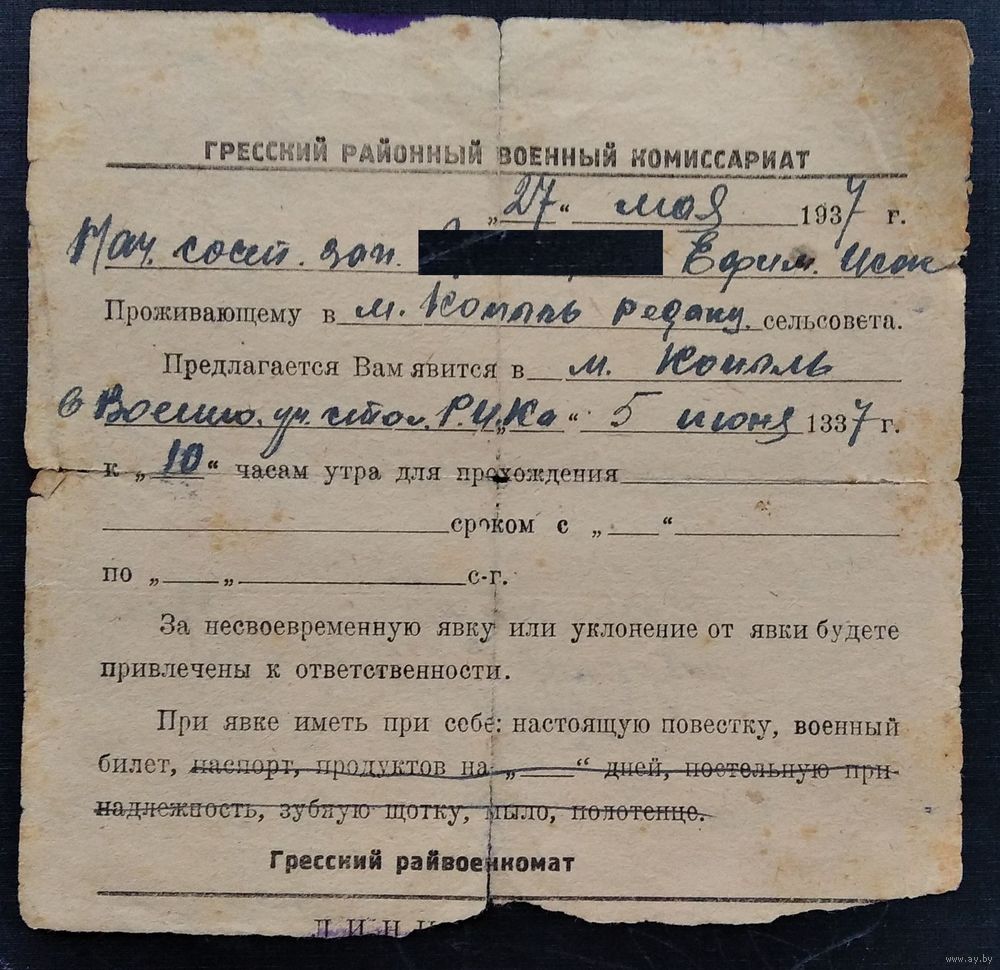 ГРЕССКИЙ РАЙОННЫЙ ВОЕННЫЙ КОМИССАРИАТ
„27“ мая 1937 г.
Нач. сост. зап. Ефим. Исак
Проживающему в м. Копыль редакц. сельсовета.
Предлагается Вам явится в м. Копыль
в Военно. уч. стол. Р.И.Ка „ “ 5 июня 1337 г.
к „10“ часам утра для прохождения
сроком с „ “
по „ „ с-г.
За несвоевременную явку или уклонение от явки будете
привлечены к ответственности.
При явке иметь при себе: настоящую повестку, военный
билет, паспорт, продуктов на „ “ дней, постельную при-
надлежность, зубную щотку, мыло, полотенце.
Гресский райвоенкомат
www.ay.by